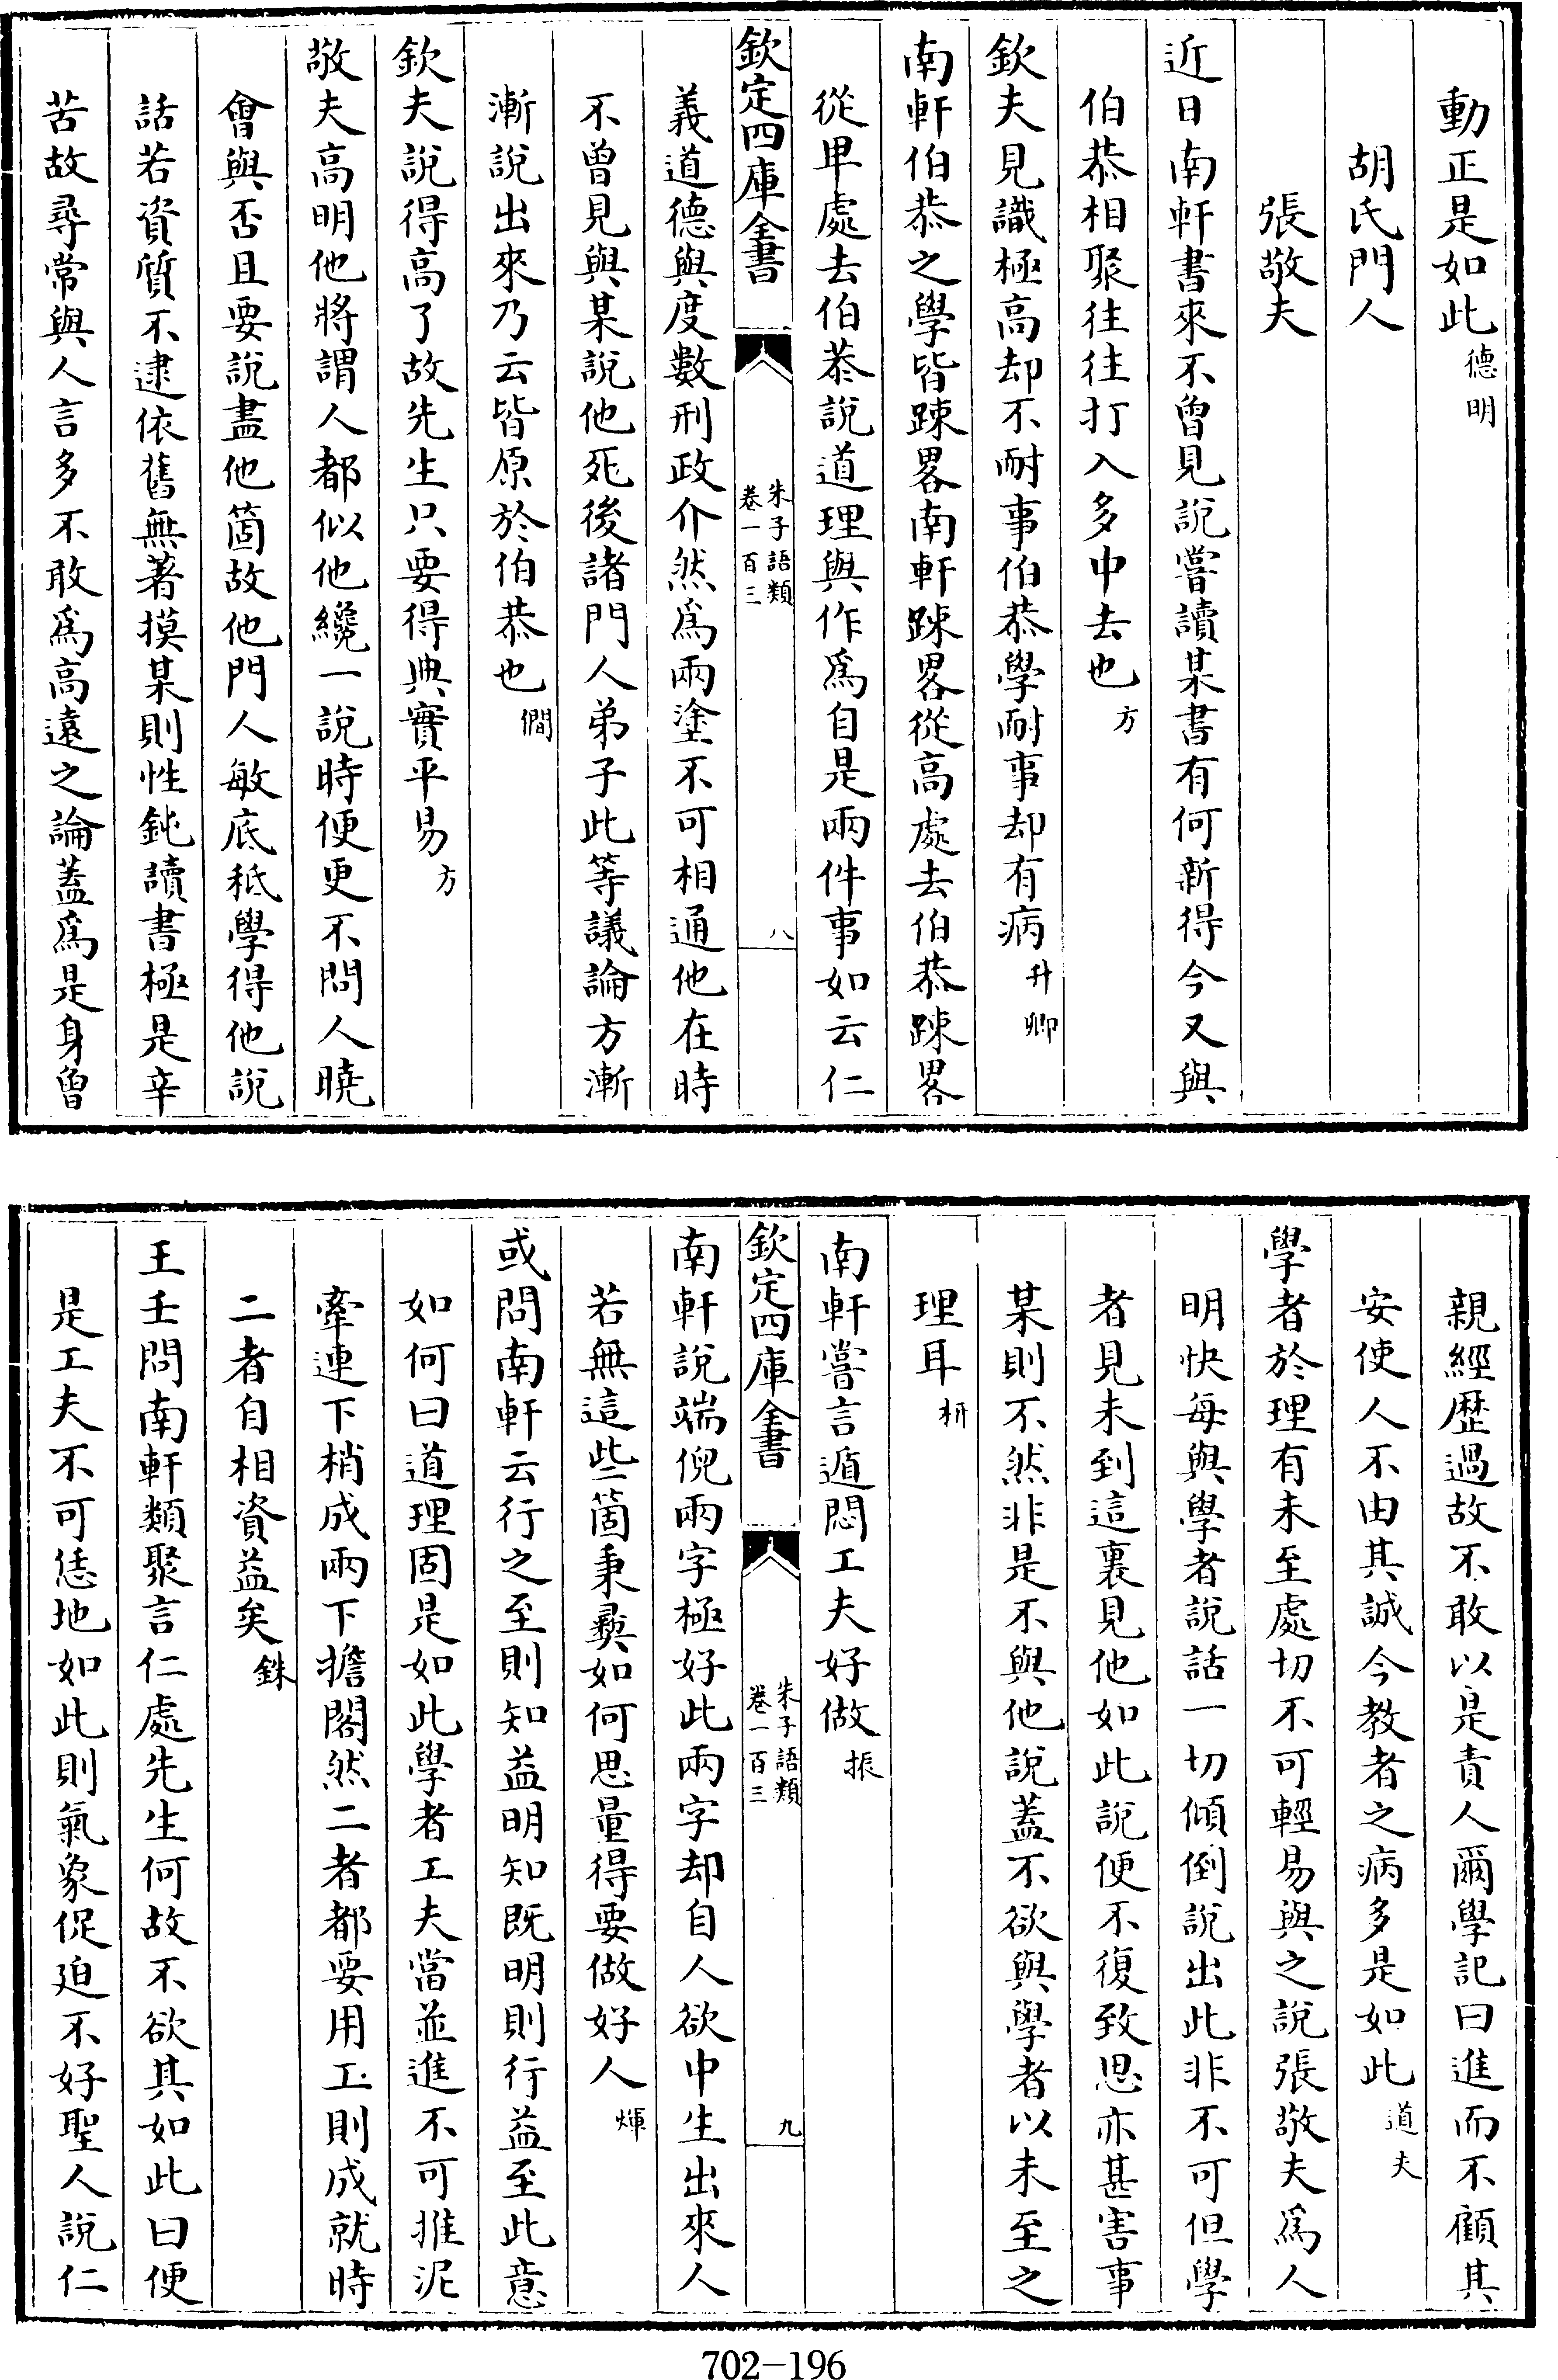 動正是如此德明
胡氏門人
張敬夫
近日南軒書來不曾見說嘗讀某書有何新得今又與
伯恭相聚往往打入多中去也方
欽夫見識極高却不耐事伯恭學耐事却有病升卿
南軒伯恭之學皆踈畧南軒踈畧從高處去伯恭踈畧
從卑處去伯恭說道理與作為自是兩件事如云仁
欽定四庫全書
朱子語類
卷一百三
八
義道德與度數刑政介然為兩塗不可相通他在時
不曾見與某說他死後諸門人弟子此等議論方漸
漸說出來乃云皆原於伯恭也僩
欽夫說得高了故先生只要得典實平易方
敬夫高明他將謂人都似他纔一說時便更不問人曉
會與否且要說盡他箇故他門人敏底秪學得他說
話若資質不逮依舊無著摸某則性鈍讀書極是辛
苦故尋常與人言多不敢為高遠之論蓋為是身曾
親經歴過故不敢以是責人爾學記曰進而不顧其
安使人不由其誠今教者之病多是如此道夫
學者於理有未至處切不可輕易與之說張敬夫為人
明快每與學者說話一切傾倒說出此非不可但學
者見未到這裏見他如此說便不復致思亦甚害事
某則不然非是不與他說蓋不欲與學者以未至之
理耳枅
南軒嘗言遁悶工夫好做振
欽定四庫全書
朱子語類
卷一百三
九
南軒說端倪兩字極好此兩字却自人欲中生出來人
若無這些箇秉彞如何思量得要做好人煇
或問南軒云行之至則知益明知既明則行益至此意
如何曰道理固是如此學者工夫當並進不可推泥
牽連下梢成兩下擔閣然二者都要用工則成就時
二者自相資益矣銖
王壬問南軒類聚言仁處先生何故不欲其如此曰便
是工夫不可恁地如此則氣象促迫不好聖人說仁
702-196